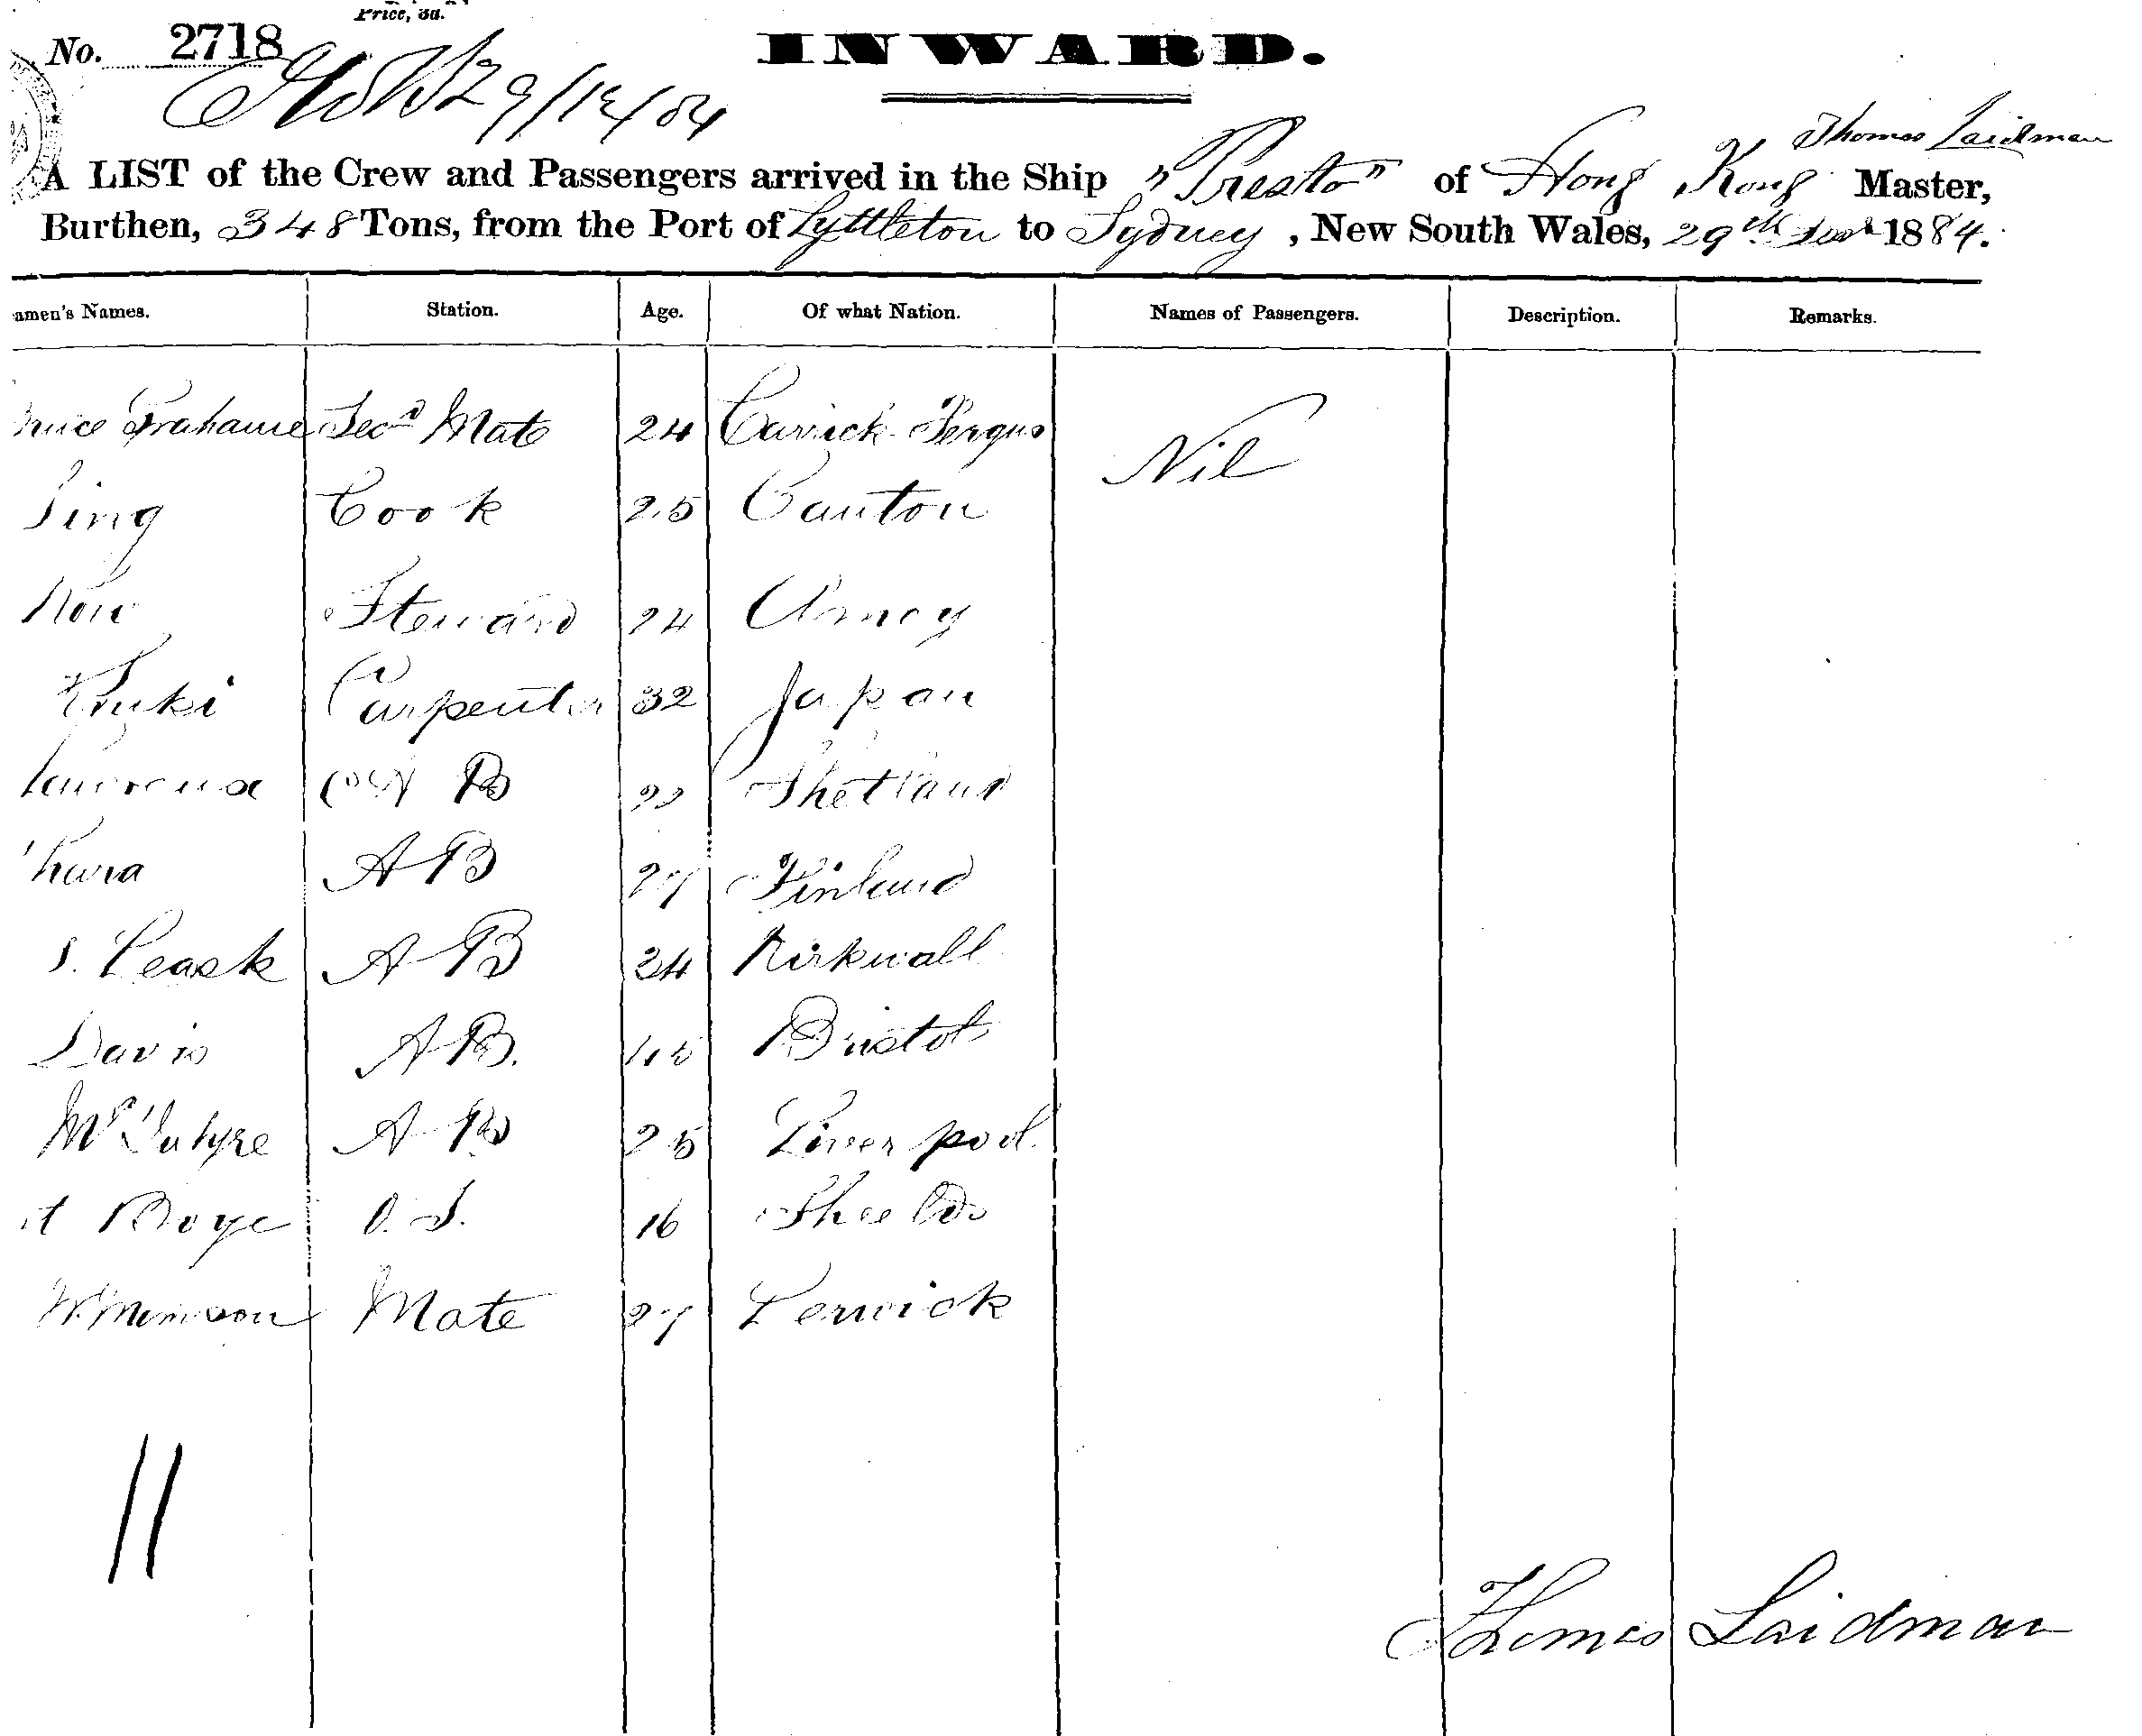 Price, 3d.
No. 2718
INWARD.
29/12/84
Thomas Laidman
A LIST of the Crew and Passengers arrived in the Ship "Presto" of Hong Kong Master,
Burthen, 348 Tons, from the Port of Lyttleton to Sydney, New South Wales, 29th 1884.
amen's Names. Station. Age. Of what Nation. Names of Passengers. Description. Remarks.
Grahame Secd Mate 24 Carrick Fergus Nil
Sing Cook 25 Canton
How Steward 24 Amoy
Carpenter 32 Japan
A B 22 Shetland
A B 27 Finland
S. Leask A B 24 Kirkwall
Davis A B. 45 Bristol
McIntyre A B 25 Liverpool.
Boye O. S. 16 Sheelds
Mate 27 Lerwick
11
Thomas Laidman